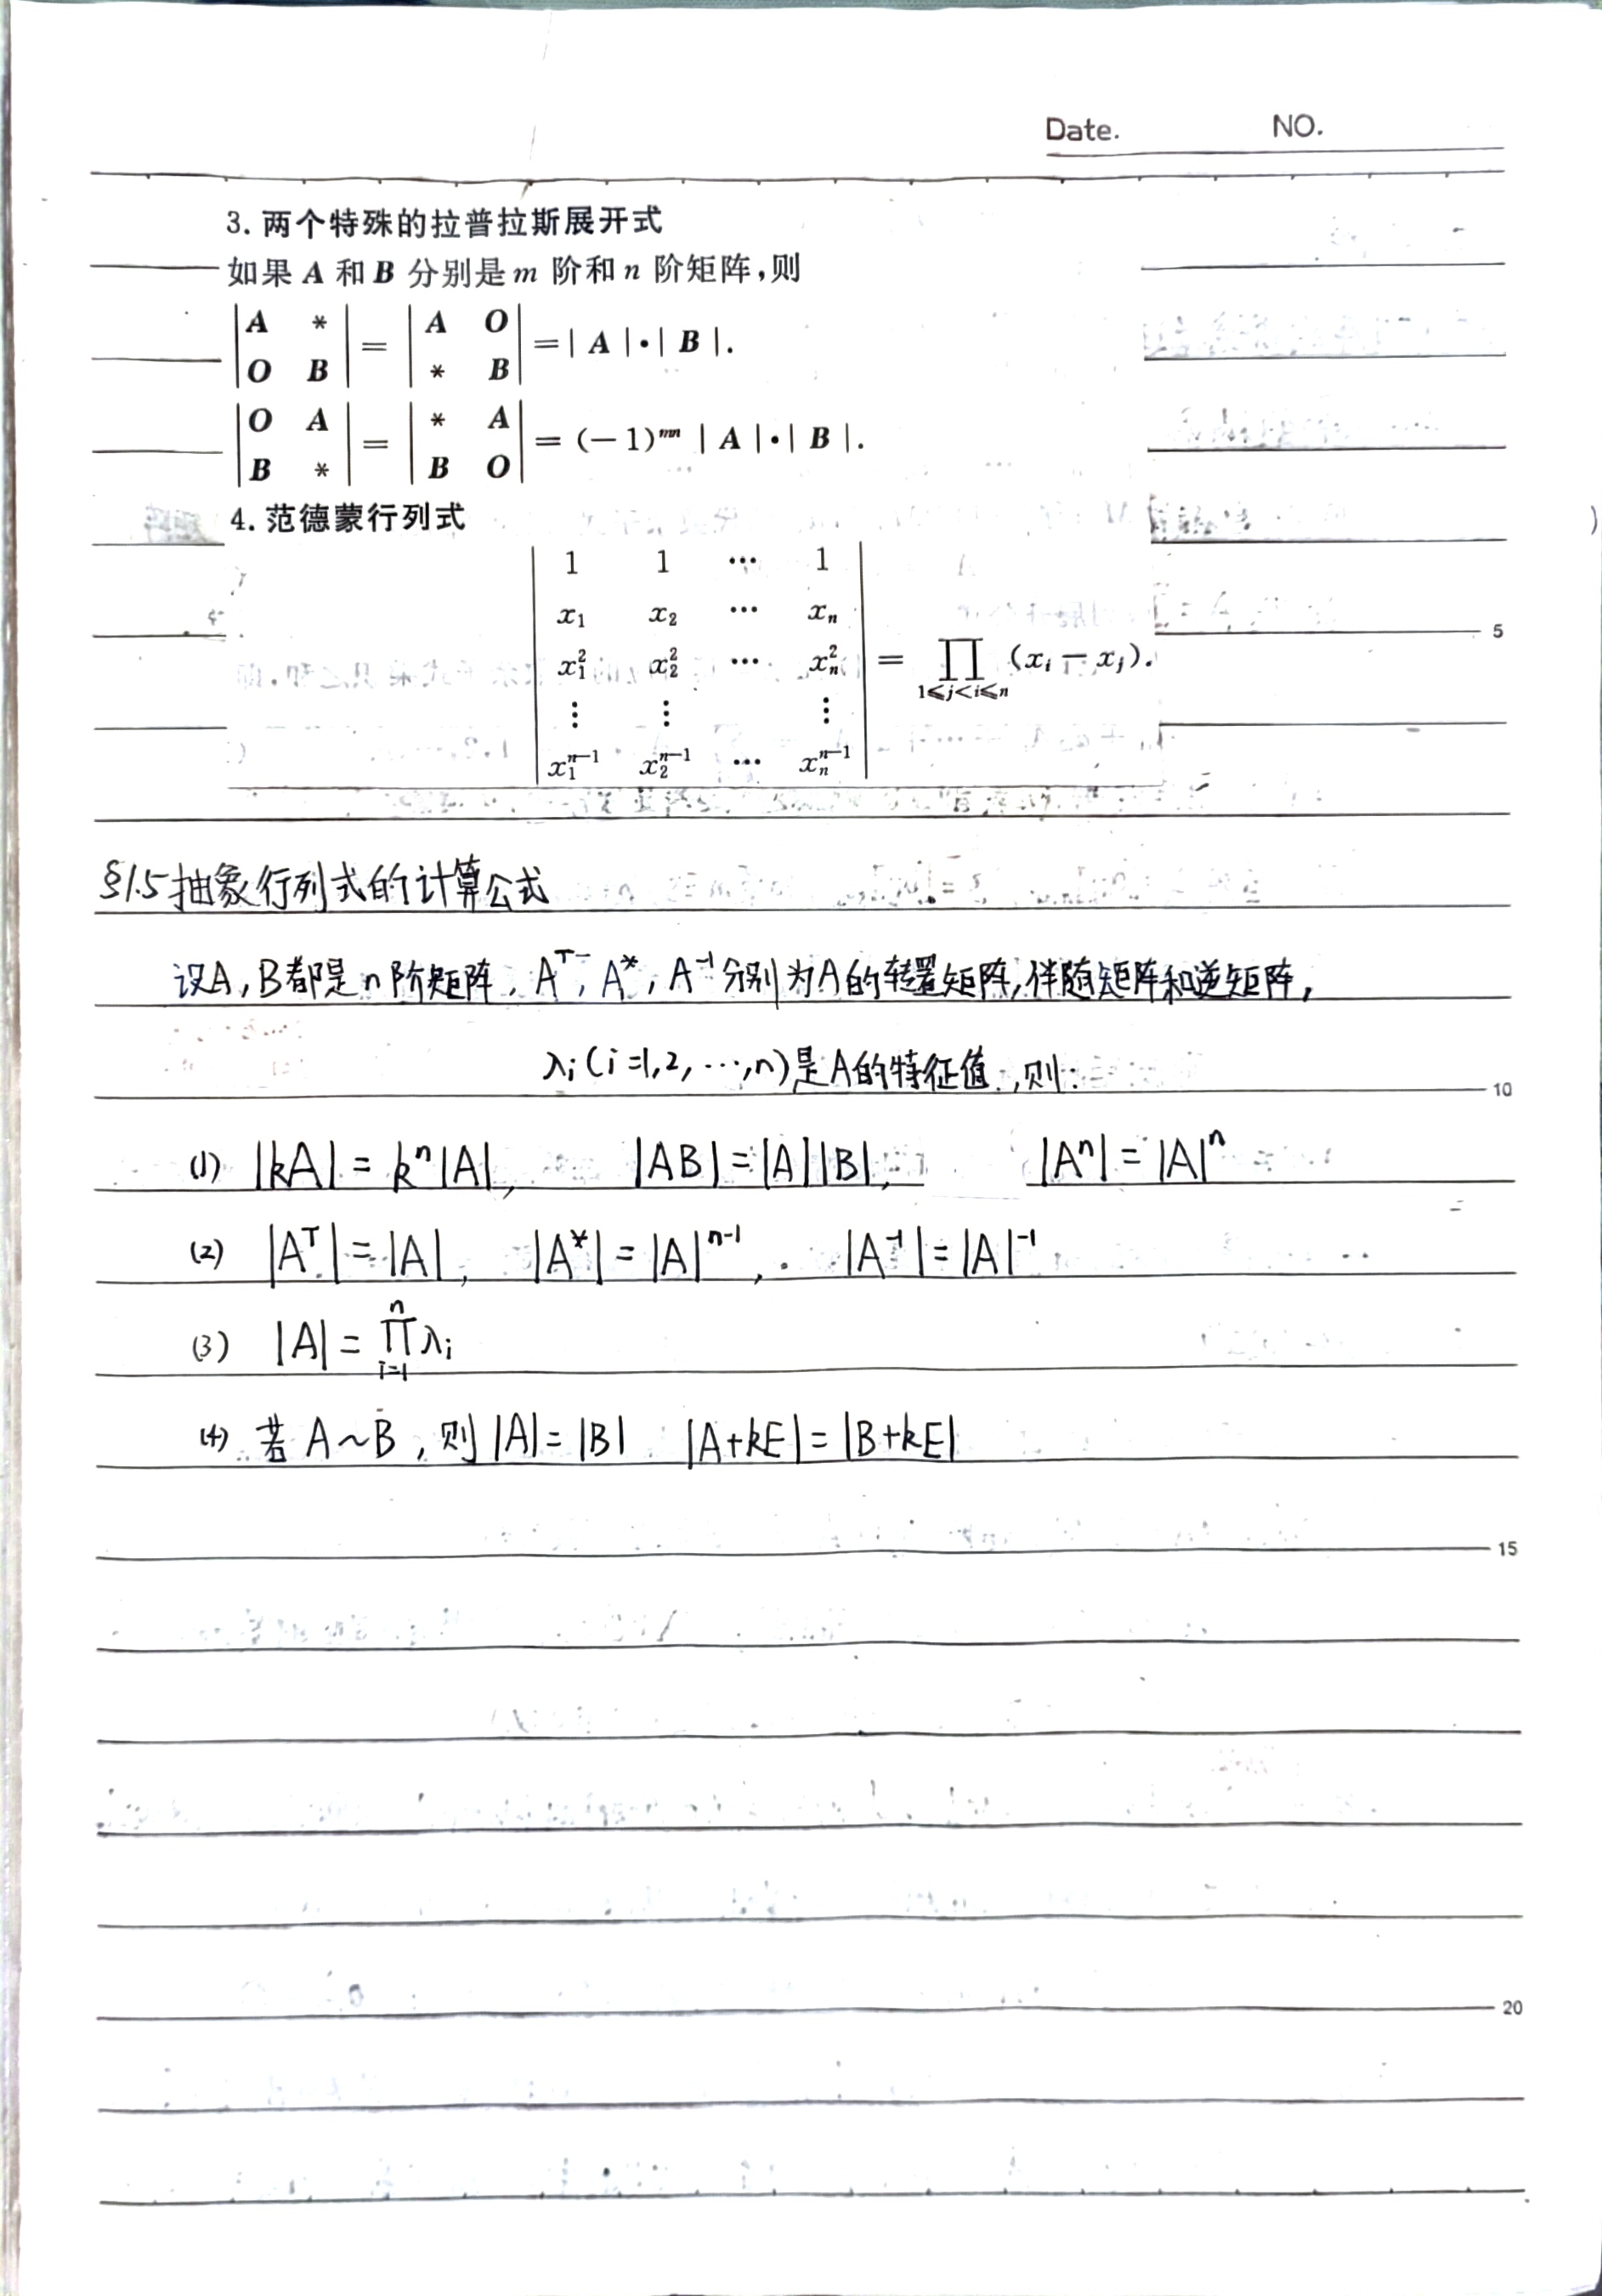 Date. NO.
3. 两个特殊的拉普拉斯展开式
如果 A 和 B 分别是 m 阶和 n 阶矩阵,则
|A * ; O B| = |A O ; * B| = | A | · | B |.
|O A ; B *| = |* A ; B O| = (−1)^{mn} | A | · | B |.
4. 范德蒙行列式
1 1 ⋯ 1
x₁ x₂ ⋯ xₙ
x₁² x₂² ⋯ xₙ² = ∏_{1≤j<i≤n} (xᵢ − xⱼ).
5
⋮ ⋮ ⋮
x₁^{n−1} x₂^{n−1} ⋯ xₙ^{n−1}
§1.5 抽象行列式的计算公式
设A, B都是 n 阶矩阵, Aᵀ, A*, A⁻¹ 分别为A的转置矩阵,伴随矩阵和逆矩阵,
λᵢ (i=1,2, ⋯,n)是A的特征值,则:
10
(1) |kA| = kⁿ|A|, |AB| = |A||B|, |Aⁿ| = |A|ⁿ
(2) |Aᵀ| = |A|, |A*| = |A|ⁿ⁻¹, |A⁻¹| = |A|⁻¹
(3) |A| = ∏_{i=1}^{n} λᵢ
(4) 若 A~B, 则 |A| = |B| |A+kE| = |B+kE|
15
20